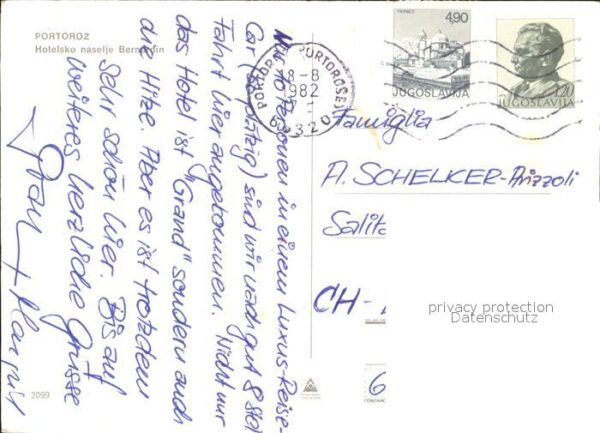 PORTOROŽ
Hotelsko naselje Bernardin
Mit 10 Personen in einem Luxus-Reise-
Car (40plätzig) sind wir nach gut 8 Std
Fahrt hier angekommen. Nicht nur
das Hotel ist "Grand" sondern auch
die Hitze. Aber es ist trotzdem
sehr schön hier. Bis auf
weiteres herzliche Grüsse
+
2099
PORTOROŽ PORTOROSE
8-8
1982
6320
4,90
JUGOSLAVIJA
1,20
JUGOSLAVIJA
Famiglia
A. SCHELKER-Arizzoli
Salita
CH-
6
privacy protection
Datenschutz